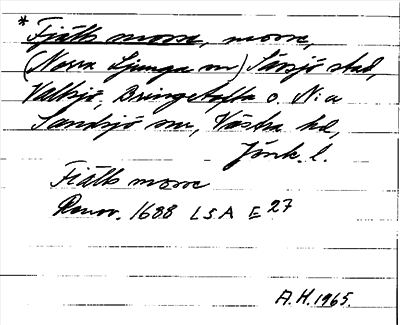 * Fjälls mosse, mosse,
(Norra Ljunga sn) Sävsjö stad,
Vallsjö, Bringetofta o. N:a
Sandsjö snr, Västra hd,
Jönk. l.
Fiälls mosse
Renov. 1688 LSA E 27
A.H. 1965.